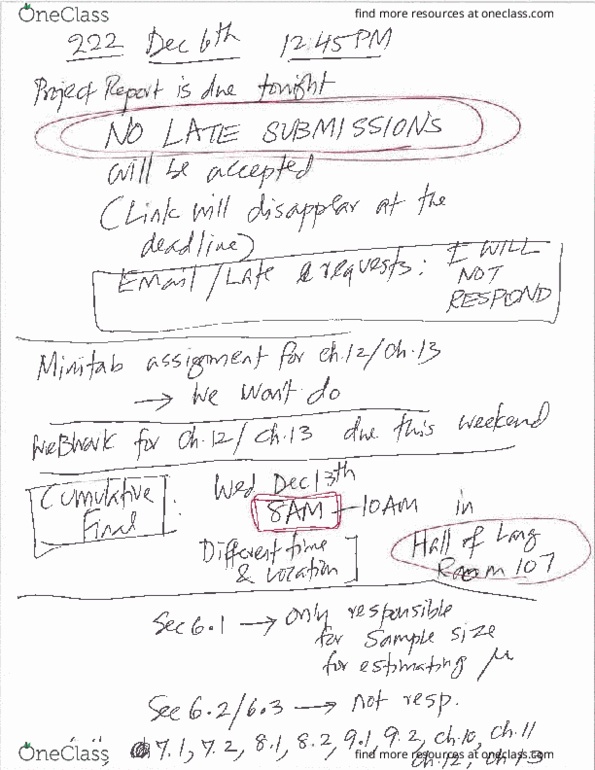 OneClass
find more resources at oneclass.com
222 Dec 6th 12:45PM
Project Report is due tonight
NO LATE SUBMISSIONS
will be accepted
(Link will disappear at the
deadline)
Email/Late requests: I WILL
NOT
RESPOND
Minitab assignment for ch.12/ch.13
→ We won't do
WeBWork for ch.12/ch.13 due this weekend
Cumulative Final : Wed Dec 13th
8AM - 10AM in
Different time
& location]
Hall of Lang
Room 107
Sec 6.1 → only responsible
for sample size
for estimating μ
Sec 6.2/6.3 → not resp.
7.1, 7.2, 8.1, 8.2, 9.1, 9.2, ch.10, ch.11
OneClass
find more resources at oneclass.com